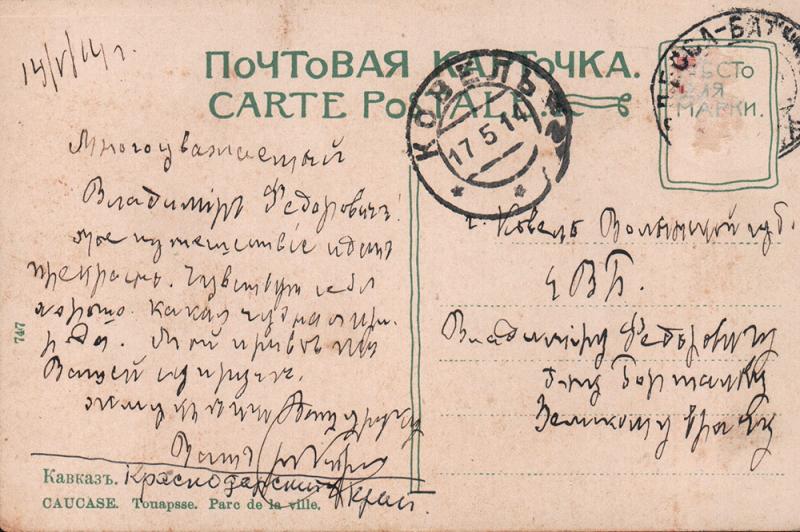 14/V/14 г.
ПОЧТОВАЯ КАРТОЧКА.
CARTE POSTALE.
КОВЕЛЬ
17 5 14
ОДЕССА-БАТУМЪ
МѢСТО
ДЛЯ
МАРКИ.
Многоуважаемый
Владиміръ Федоровичъ!
мое путешествіе идетъ
прекрасно. Чувствую себя
хорошо. Какая чудная при-
рода. Мой привѣтъ
Вашей супругѣ.
жму
Вашъ
г. Ковель Волынской губ.
Владиміру Федоровичу
747
Кавказъ. Краснодарский край.
CAUCASE. Touapsse. Parc de la ville.